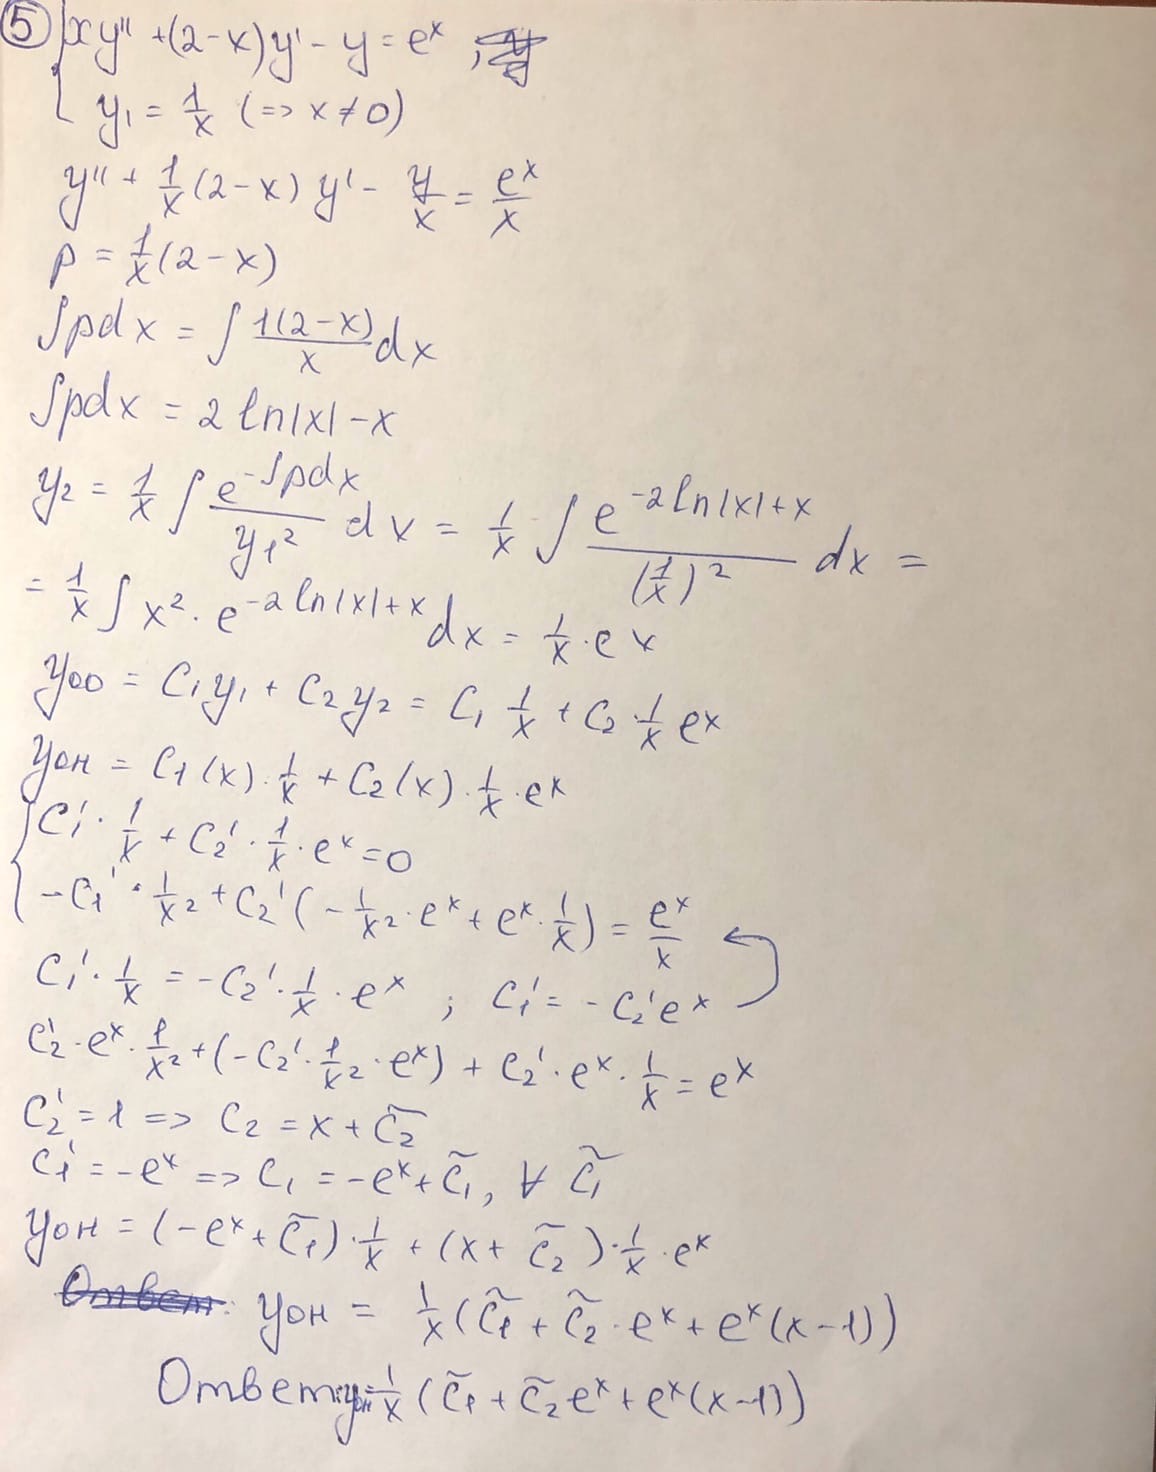 5 { xy'' + (2-x)y' - y = eˣ ,
y₁ = 1/x (=> x ≠ 0)
y'' + 1/x (2-x) y' - y/x = eˣ/x
p = 1/x (2-x)
∫pdx = ∫ 1(2-x)/x dx
∫pdx = 2 ln|x| - x
y₂ = 1/x ∫ e^(-∫pdx)/y₁² dx = 1/x ∫ e^(-2 ln|x|+x)/(1/x)² dx =
= 1/x ∫ x² · e^(-2 ln|x|+x) dx = 1/x · eˣ
yоо = C₁y₁ + C₂y₂ = C₁ 1/x + C₂ · 1/x eˣ
yон = C₁(x) · 1/x + C₂(x) · 1/x · eˣ
{ C₁' · 1/x + C₂' · 1/x · eˣ = 0
-C₁' · 1/x² + C₂' (-1/x² · eˣ + eˣ · 1/x) = eˣ/x
C₁' · 1/x = -C₂' · 1/x · eˣ ; C₁' = -C₂'eˣ
C₂' · eˣ · 1/x² + (-C₂' · 1/x² · eˣ) + C₂' · eˣ · 1/x = eˣ
C₂' = 1 => C₂ = x + C̃₂
C₁' = -eˣ => C₁ = -eˣ + C̃₁, ∀ C̃₁
yон = (-eˣ + C̃₁) · 1/x + (x + C̃₂) · 1/x · eˣ
Ответ: yон = 1/x (C̃₁ + C̃₂ · eˣ + eˣ(x-1))
Ответ: yон = 1/x (C̃₁ + C̃₂eˣ + eˣ(x-1))